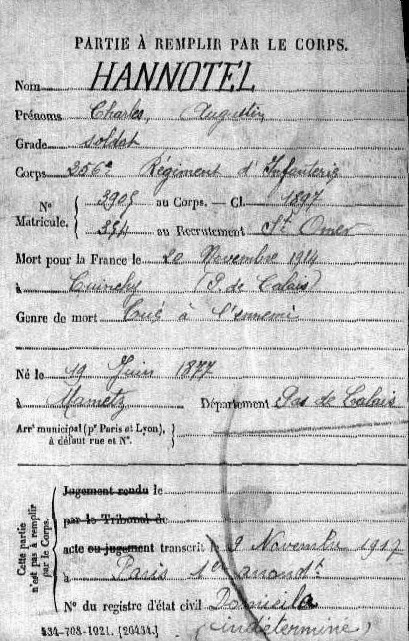 PARTIE À REMPLIR PAR LE CORPS.
Nom HANNOTEL
Prénoms Charles, Augustin
Grade soldat
Corps 256e Régiment d'Infanterie
N° Matricule. { 3905 au Corps. — Cl. 1897
354 au Recrutement St Omer
Mort pour la France le 20 Novembre 1914
à Cuinchy (P. de Calais)
Genre de mort Tué à l'ennemi
Né le 19 Juin 1877
à Mametz Département Pas de Calais
Arrt municipal (pr Paris et Lyon), à défaut rue et N°. }
Cette partie n'est pas à remplir par le Corps.
Jugement rendu le
par le Tribunal de
acte ou jugement transcrit le 9 Novembre 1917
à Paris 1er arrondt
N° du registre d'état civil Domicile
(indéterminé)
534-708-1921. [26434.]